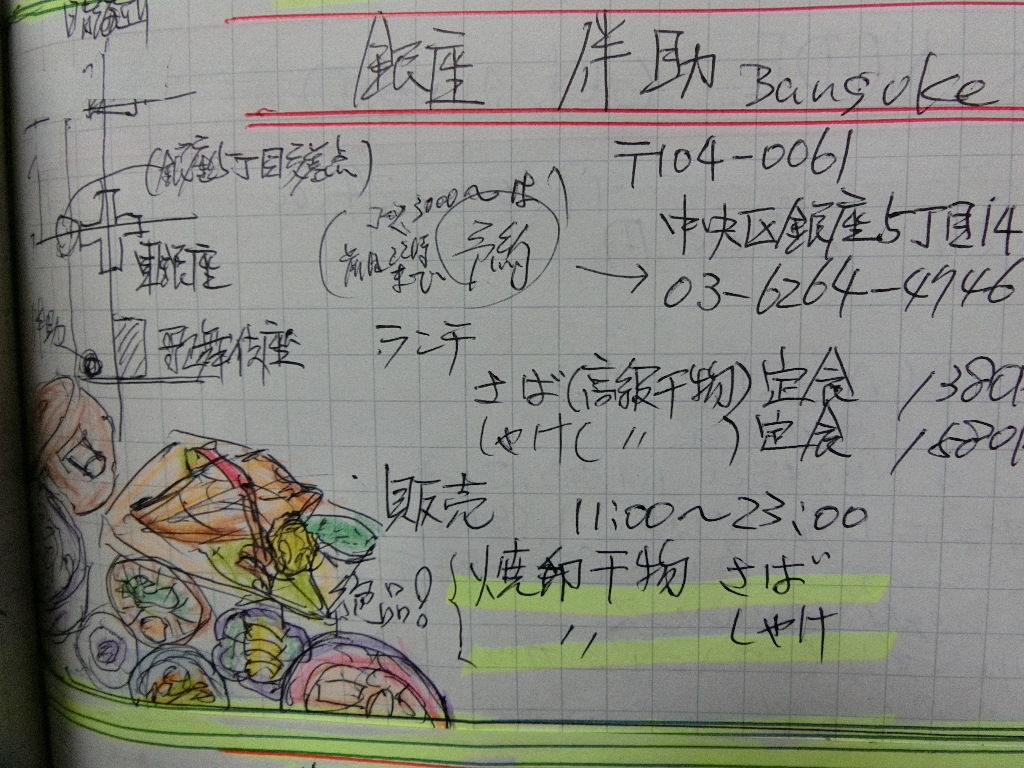 銀座 伴助 Bansuke
(銀座5丁目交差点)
〒104-0061
中央区銀座5丁目14
予約
前日22時まで
03-6264-4746
東銀座
歌舞伎座
ランチ
さば(高級干物)定食 1380
しゃけ( 〃 )定食 1580
販売 11:00~23:00
絶品!
焼 干物 さば
〃 しゃけ